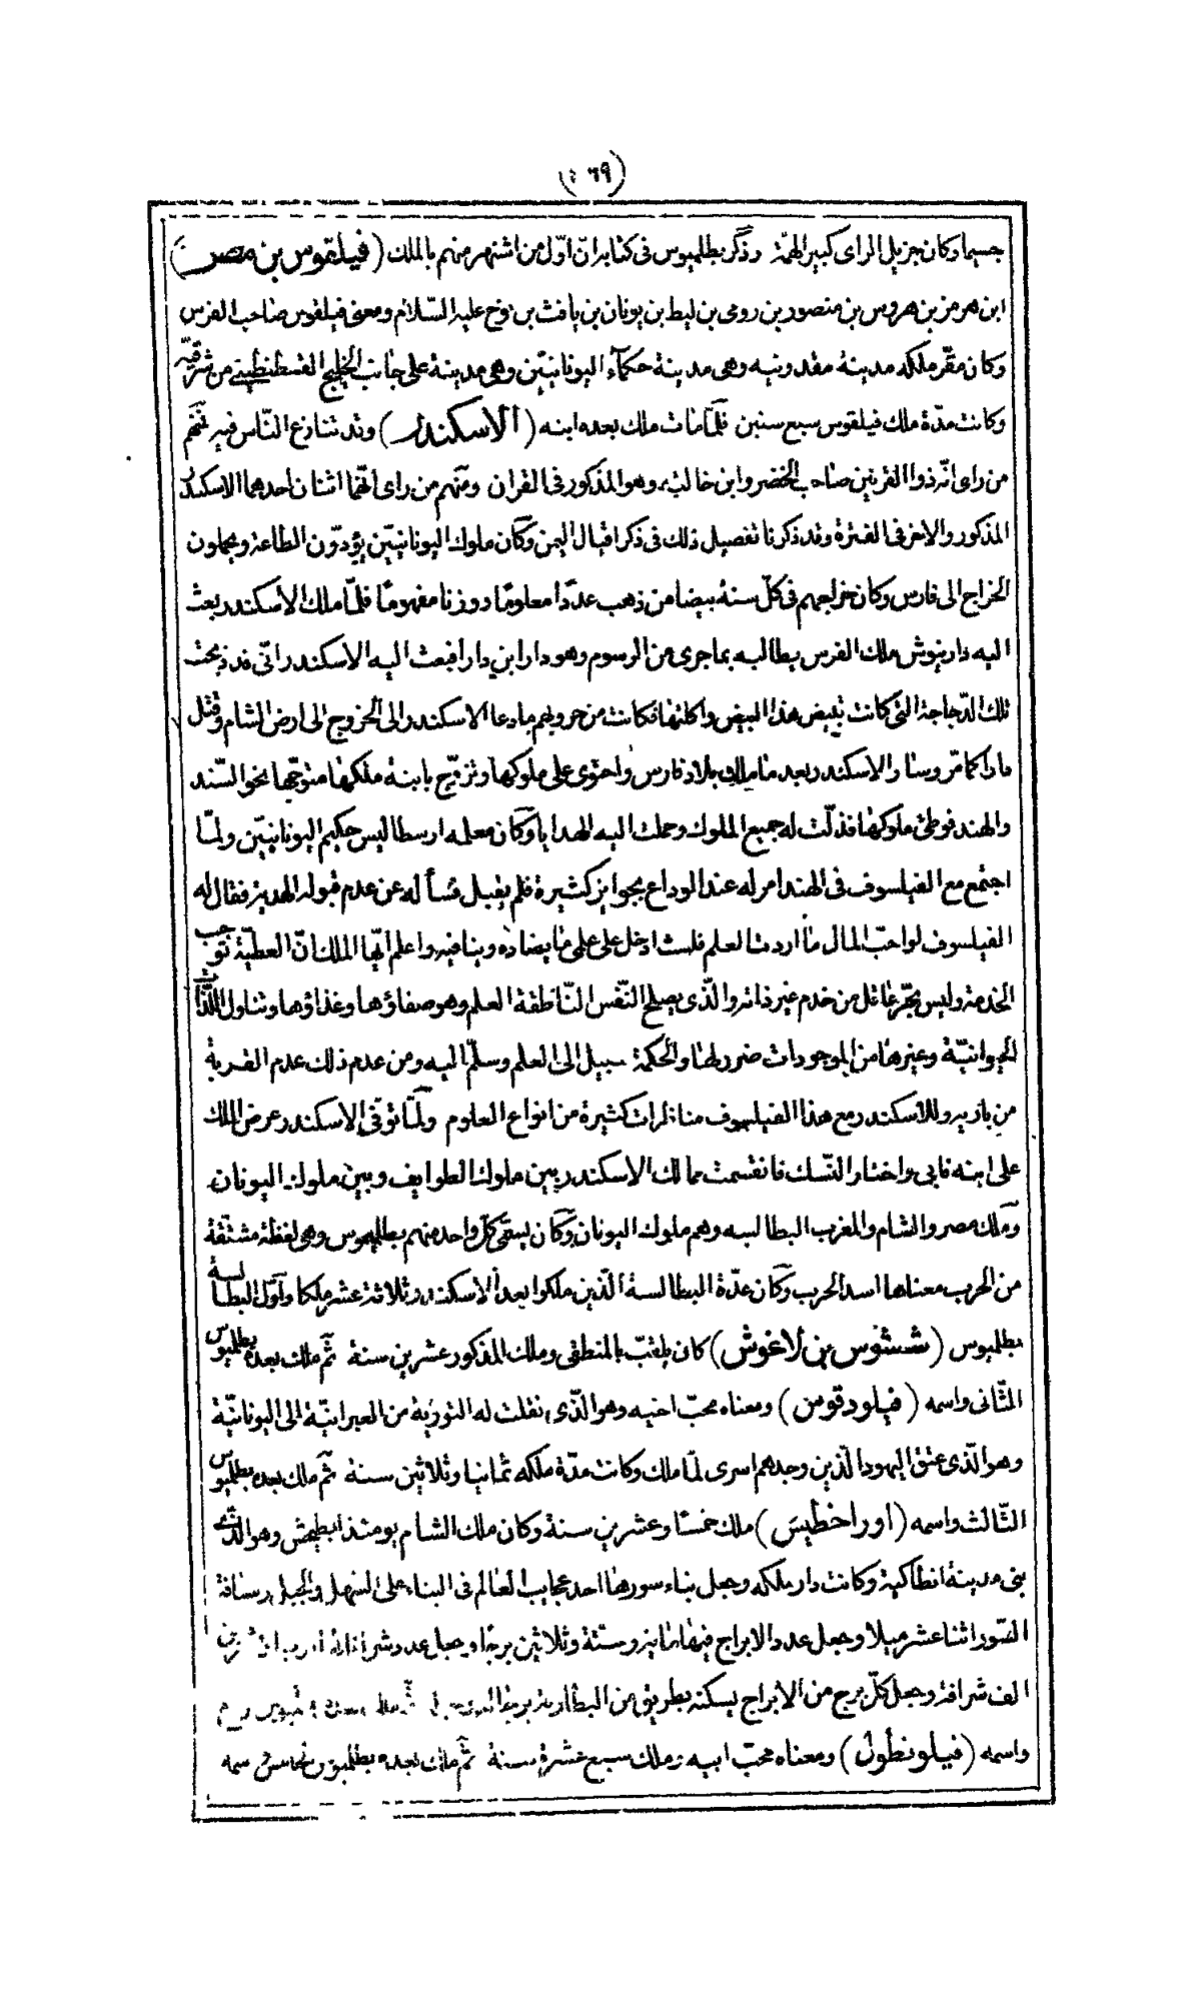 جسيما وكان جزيل الراى كبير الهمّة وذكر بطلميوس فى كتابه انّ اوّل من اشتهر منهم بالملك (فيلقوس بن مصر)
ابن هرمز بن هروس بن منصور بن رومى بن ليط بن يونان بن يافث بن نوح عليه السّلام ومعنى فيلقوس صاحب الفرس
وكان مقرّ ملكه مدينة مقدونيه وهى مدينة حكمآء اليونانيّين وهى مدينة على جانب الخليج القسطنطينى من شرقيّه
وكانت مدّة ملك فيلقوس سبع سنين فلمّا مات ملك بعده ابنه (الاسكندر) وقد تنازع النّاس فيه فمنهم
من راى انّه ذوا القرنين صاحب الخضر وابن خالته وهو المذكور فى القران ومنهم من راى انّهما اثنان احدهما الاسكندر
المذكور والاخر فى الفترة وقد ذكرنا تفصيل ذلك فى ذكر اقبال اليمن وكان ملوك اليونانيّين يؤدّون الطاعة ويحملون
الخراج الى فارس وكان خراجهم فى كلّ سنة بيضا من ذهب عددًا معلومًا ووزنا مفهومًا فلمّا ملك الاسكندر بعث
اليه داريوش ملك الفرس يطالبه بما جرى من الرسوم وهو دارا ابن دارا فبعث اليه الاسكندر انّى قد ذبحت
تلك الدّجاجة التى كانت تبيض هذا البيض واكلتها فكانت من حروبهم ما دعا الاسكندر الى الخروج الى ارض الشام وقتل
دارا كما مرّ وسار الاسكندر بعد ما ملك بلاد فارس واحتوى على ملوكها وتزوّج بابنة ملكها متوجّها نحو السّند
والهند فوطئ ملوكها فذلّت له جميع الملوك وحملت اليه الهدايا وكان معلمه ارسطاليس حكيم اليونانيّين ولمّا
اجتمع مع الفيلسوف فى الهند امر له عند الوداع بجوايز كثيرة فلم يقبل فسأله عن عدم قبوله الهدية فقال له
الفيلسوف لو احبّ المال ما اردت العلم فلست ادخل على علمى ما يضاده وينافيه واعلم ايّها الملك انّ العطيّة توجب
الخدمة وليس بحرّ عاقل من خدم غير ذاته والّذى يصلح النّفس النّاطقة العلم وهو صفاؤها وغذاؤها وتناول اللّذات
الحيوانيّة وغيرها من الموجودات ضرر لها والحكمة سبيل الى العلم وسلّم اليه ومن عدم ذلك عدم القربة
من باريه وللاسكندر مع هذا الفيلسوف مناظرات كثيرة من انواع العلوم ولمّا توفّى الاسكندر عرض الملك
على ابنه فابى واختار النّسك فانقسمت ممالك الاسكندر بين ملوك الطوايف وبين ملوك اليونان
وملك مصر والشام والمغرب البطالسه وهم ملوك اليونان وكان يسمّى كلّ واحد منهم بطلميوس وهى لفظة مشتقّة
من الحرب معناها اسد الحرب وكان عدّة البطالسة الّذين ملكوا بعد الاسكندر ثلاثة عشر ملكا واوّل البطالسة
بطلميوس (ششوس بن لاغوش) كان يلقب بالمنطقى وملك المذكور عشرين سنة ثمّ ملك بعده بطلميوس
الثّانى واسمه (فيلودقوس) ومعناه محبّ اخيه وهو الّذى نقلت له التورية من العبرانيّة الى اليونانيّة
وهو الّذى عتق اليهود الّذين وجدهم اسرى لمّا ملك وكانت مدّة ملكه ثمانيا وثلاثين سنة ثمّ ملك بعده بطلميوس
الثّالث واسمه (اوراخطيس) ملك خمسًا وعشرين سنة وكان ملك الشام يومئذ ابطيخش وهو الّذى
بنى مدينة انطاكية وكانت دار ملكه وجعل بناء سورها احد عجايب العالم فى البناء على السهل والجبل ومسافة
السّور اثنا عشر ميلا وجعل عدد الابراج فيها مائة وستّة وثلاثين برجًا وجعل عدد شرافاته اربعا وعشرين
الف شرافة وجعل كلّ برج من الابراج يسكنه بطريق من البطارقة
واسمه (فيلونطول) ومعناه محبّ ابيه وملك سبع عشرة سنة ثمّ ملك بعده بطلميوس